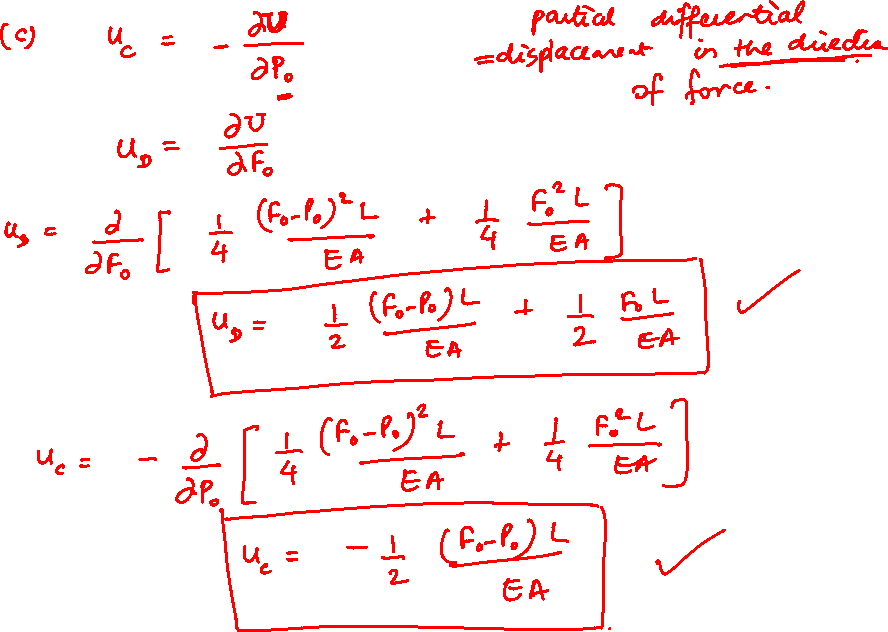 (c) u_C = - ∂U/∂P₀ partial differential
=displacement in the direction
of force.
u_D = ∂U/∂F₀
u_D = ∂/∂F₀ [ 1/4 (F₀-P₀)² L/EA + 1/4 F₀² L/EA ]
u_D = 1/2 (F₀-P₀) L/EA + 1/2 F₀ L/EA ✓
u_C = - ∂/∂P₀ [ 1/4 (F₀-P₀)² L/EA + 1/4 F₀² L/EA ]
u_C = - 1/2 (F₀-P₀) L/EA ✓